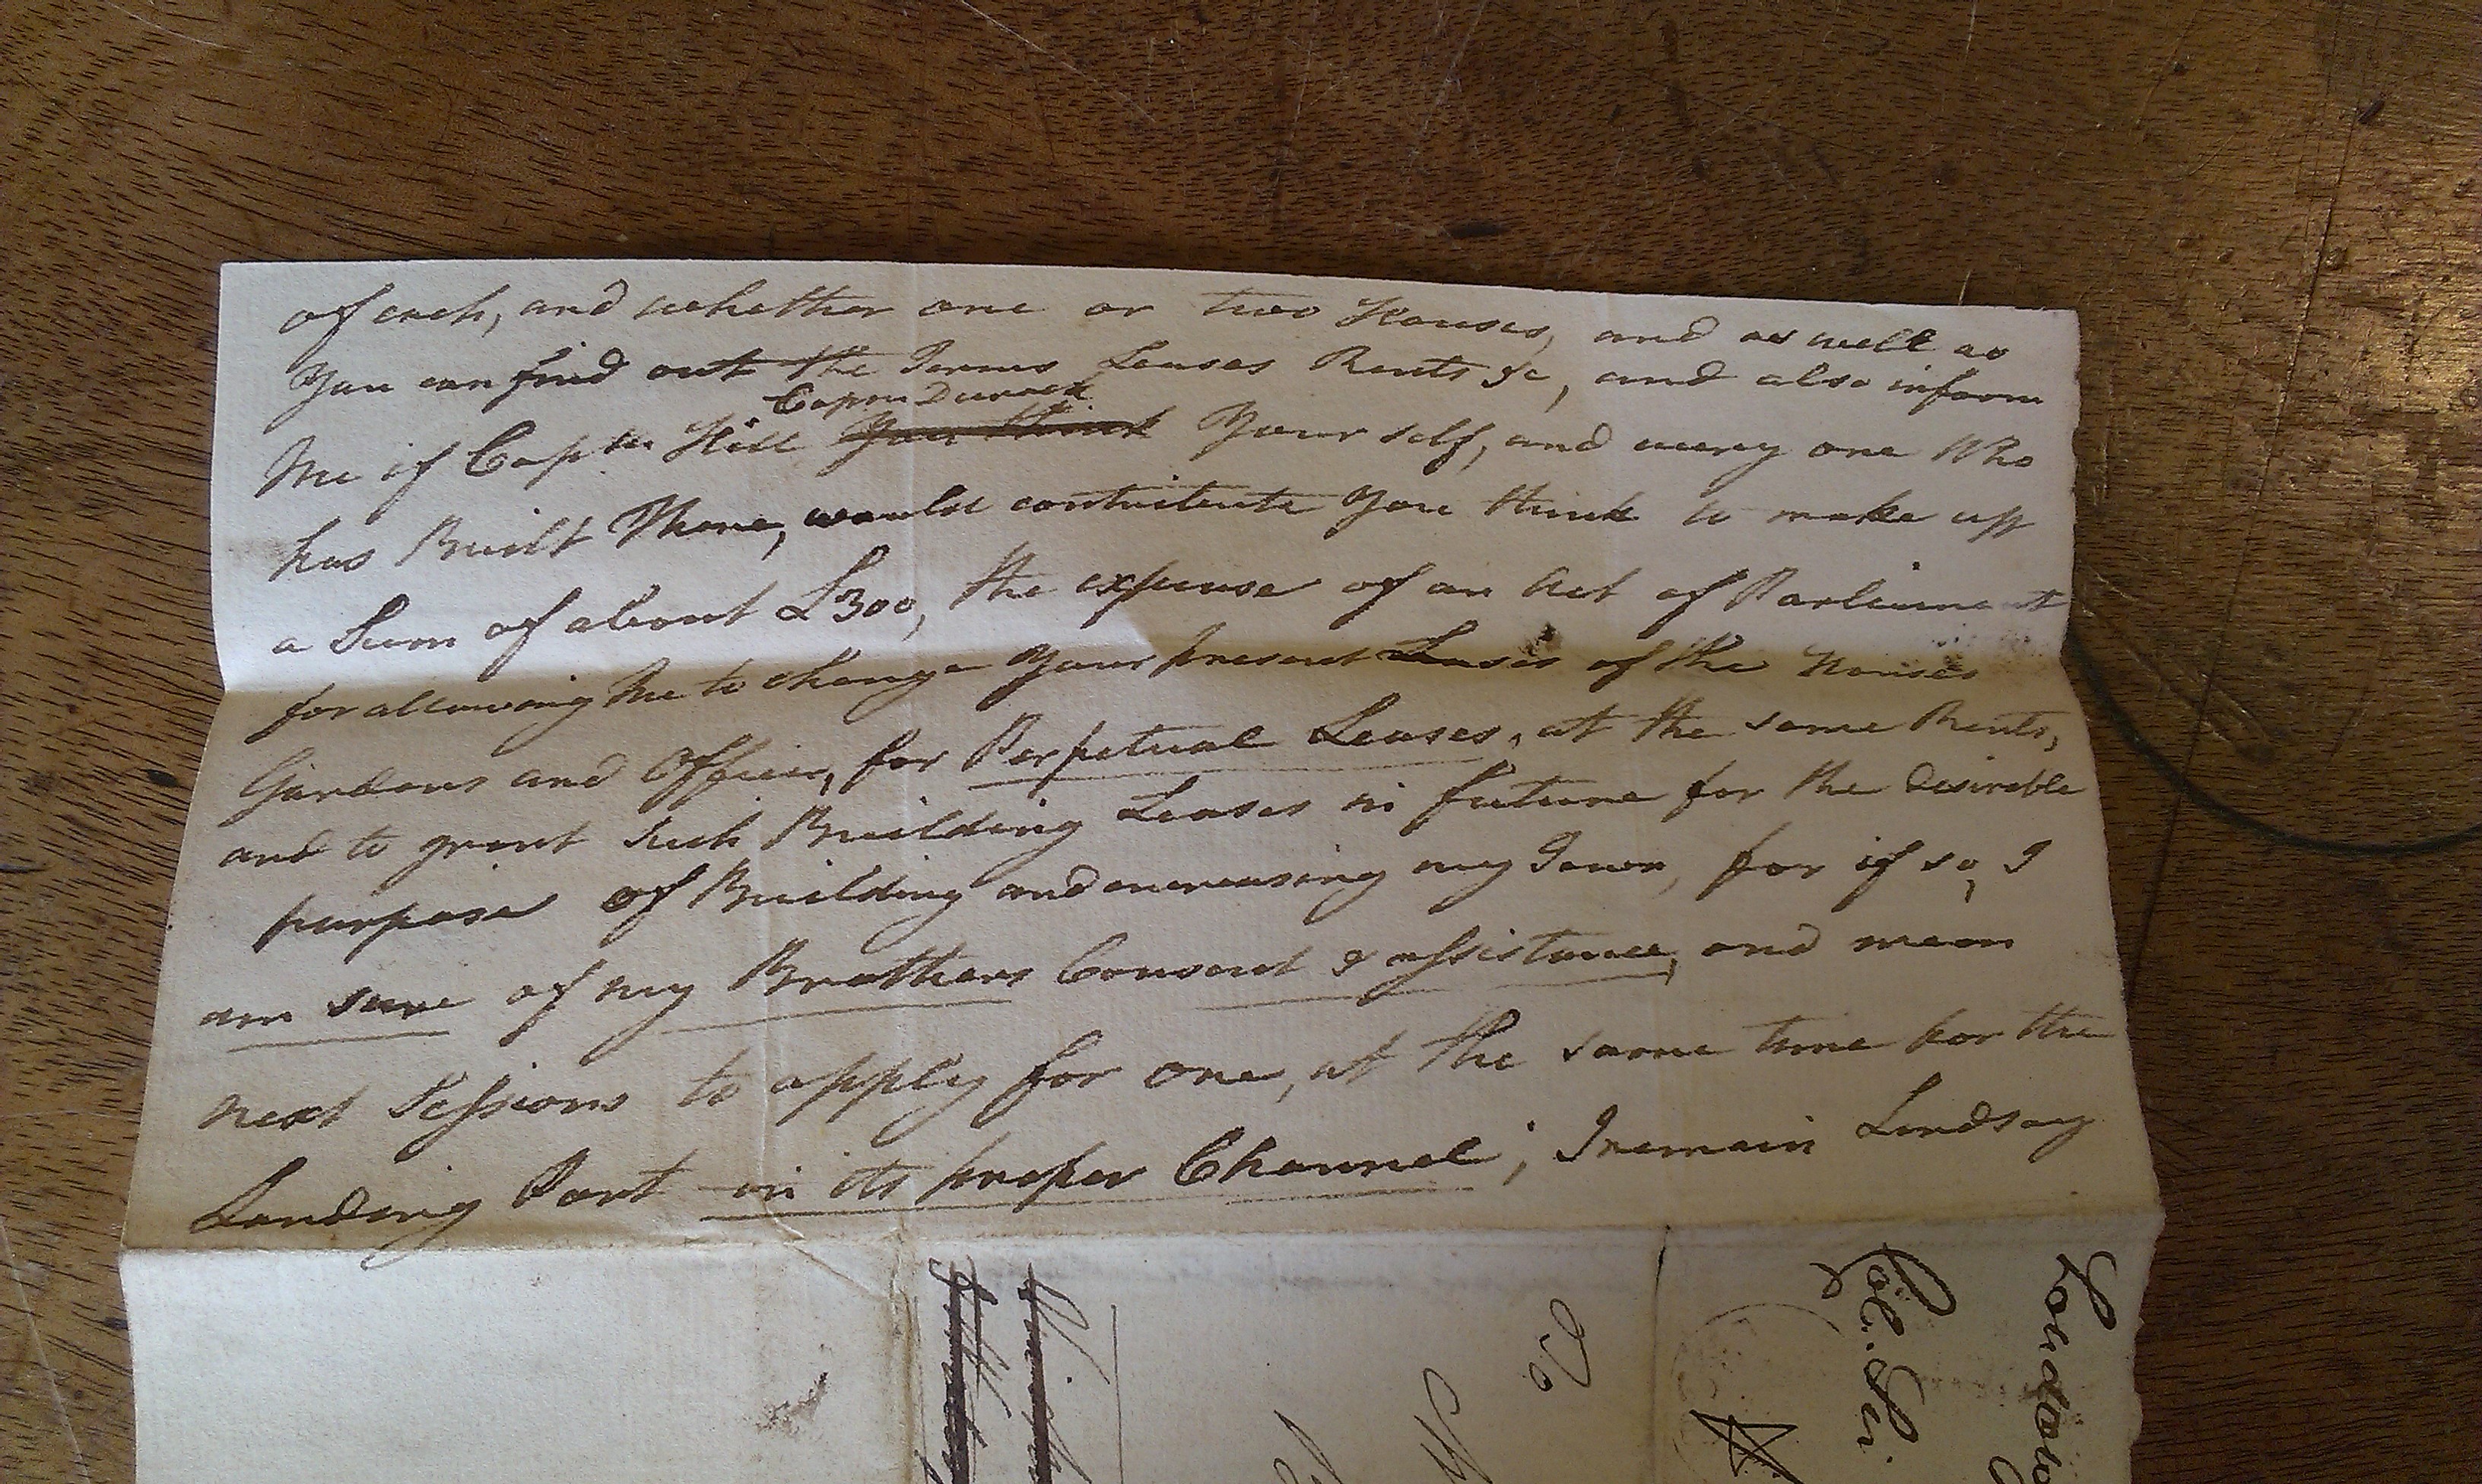 of each, and whether one or two Houses, and as well as
You can find out the Terms Leases Rents &c, and also inform
Capn Durack
Me if Captn Hill You think Your self, and every one Who
has Built There, would contribute You think to make up
a Sum of about £300, the expense of an Act of Parliament
for allowing Me to change Your present Leases of the Houses
Gardens and Offices, for Perpetual Leases, at the same Rents,
and to grant such Building Leases in future for the desirable
purpose of Building and encreasing my Town, for if so, I
am sure of my Brothers Consent & assistance, and mean
next Sessions to apply for one, at the same time for the
Landing Part in its proper Channel; I remain Lindsay
To